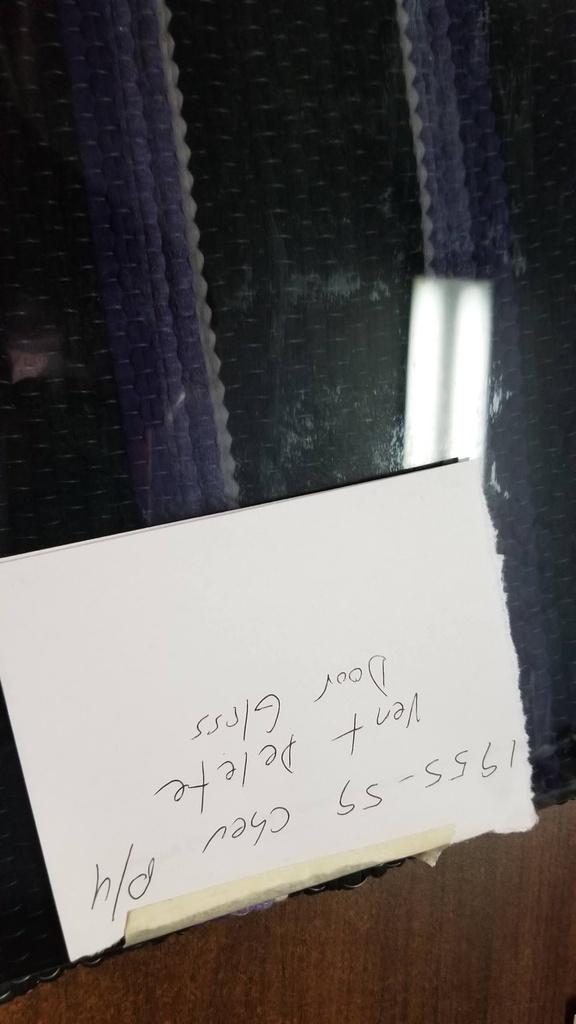 1955-59 Chev P/U
Vent Delete
Door Glass